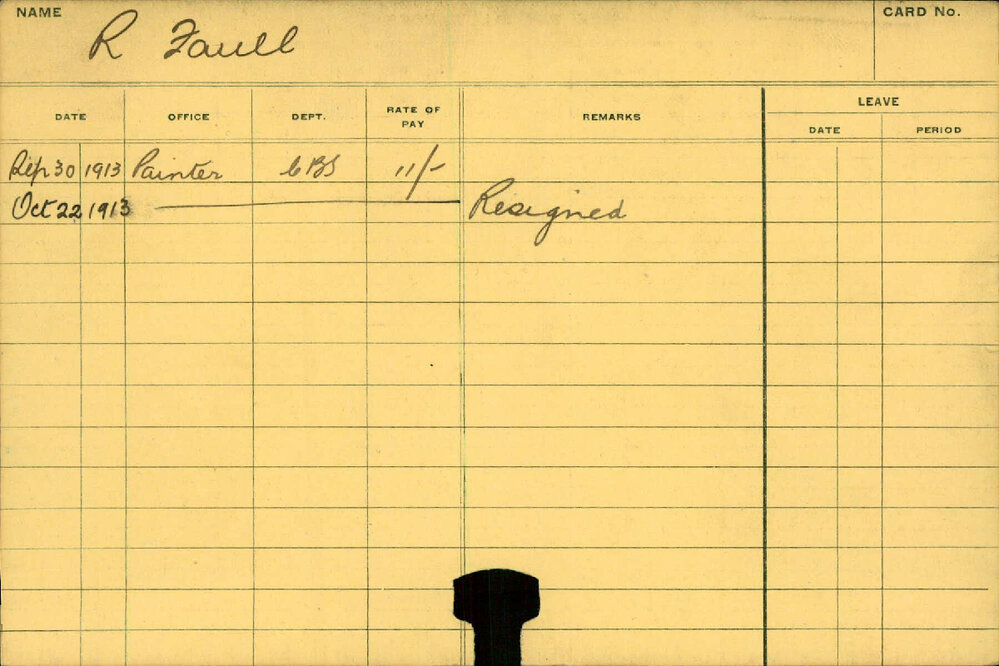 NAME
R Faull
CARD No.
DATE OFFICE DEPT. RATE OF PAY REMARKS LEAVE
DATE PERIOD
Sep 30 1913 Painter 11/-
Oct 22 1913 Resigned